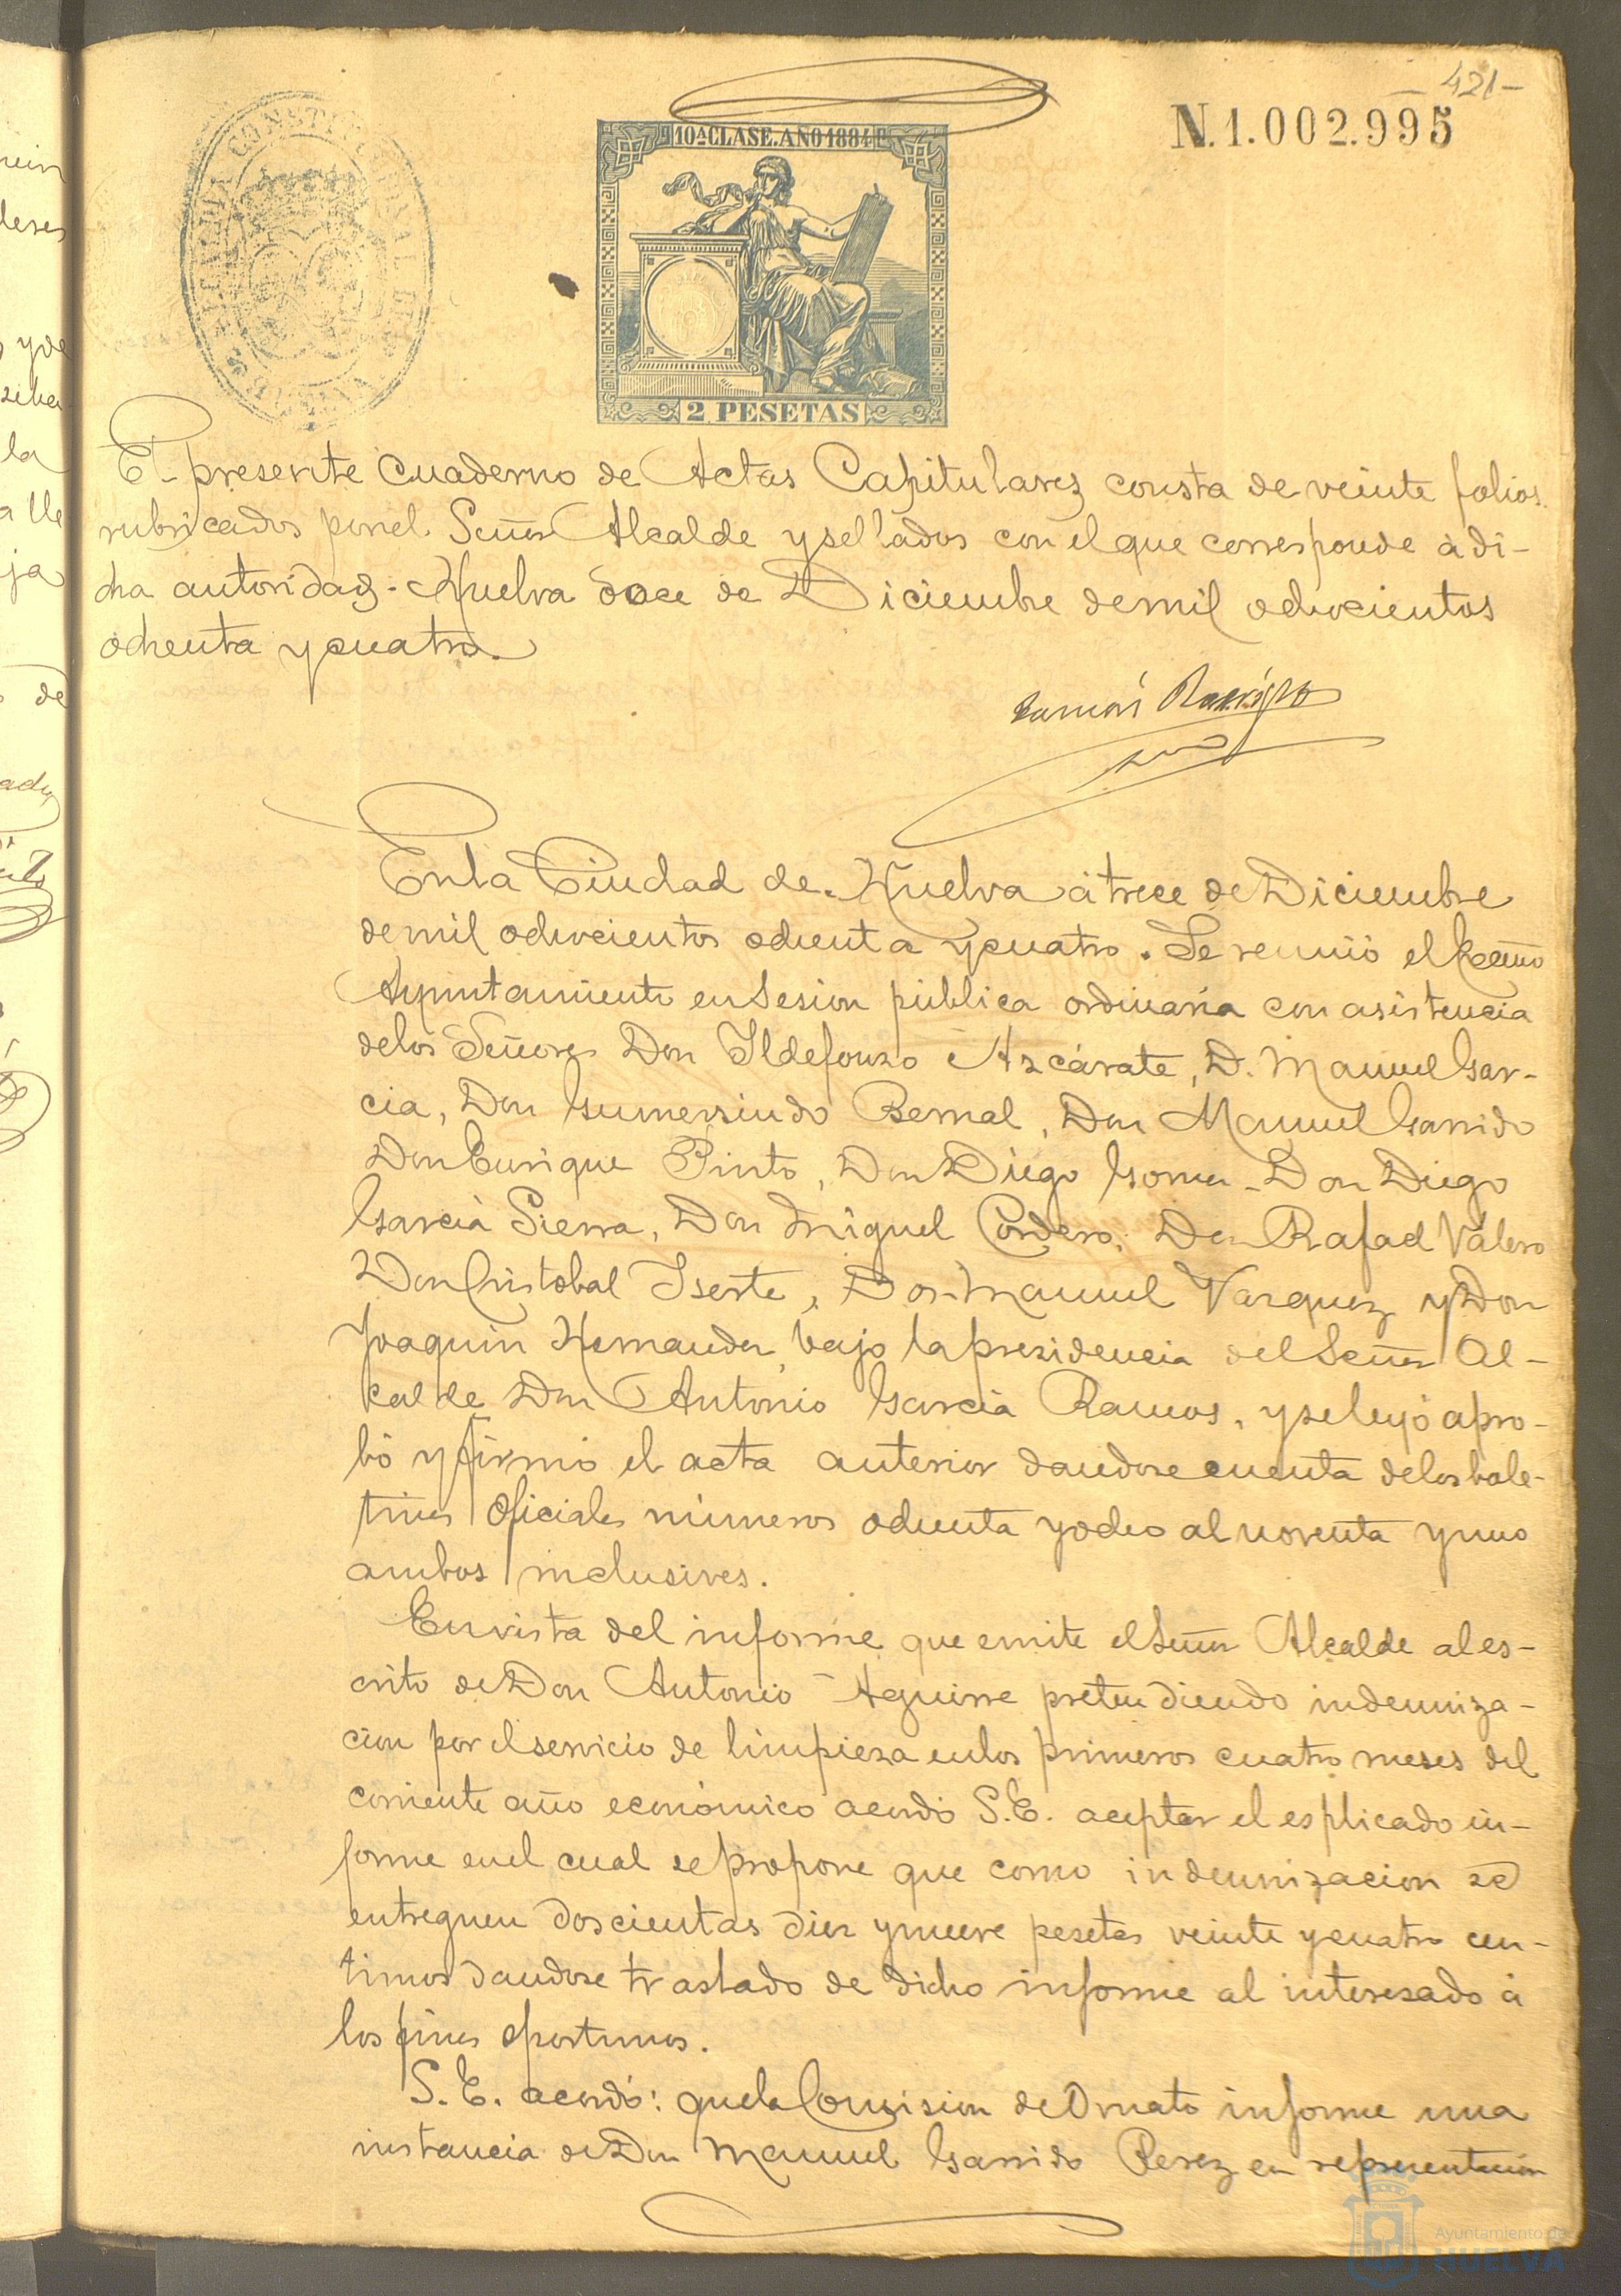 421-
N.1.002.995
10ª CLASE.AÑO 1884
2 PESETAS
El presente Cuaderno de Actas Capitulares consta de veinte folios
rubricados por el Señor Alcalde y sellados con el que corresponde á di-
cha autoridad. Huelva doce de Diciembre de mil ochocientos
ochenta y cuatro.
En la Ciudad de Huelva á trece de Diciembre
de mil ochocientos ochenta y cuatro. Se reunió el Excmo
Ayuntamiento en Sesion pública ordinaria con asistencia
de los Señores Don Ildefonso Azcárate, D. Manuel Gar-
cia, Don Gumersindo Bernal, Don Manuel Garrido
Don Enrique Pinto, Don Diego Gomez Don Diego
Garcia Sierra, Don Miguel Cordero, Don Rafael Valero
Don Cristobal Iserte, Don Manuel Vazquez y Don
Joaquin Hernandez, bajo la presidencia del Señor Al-
calde Don Antonio Garcia Ramos, y se leyó apro-
bó y firmó el acta anterior dandose cuenta de los bole-
tines Oficiales números ochenta y ocho al noventa y uno
ambos inclusives.
En vista del informe que emite el Señor Alcalde al es-
crito de Don Antonio Aguirre pretendiendo indemniza-
cion por el servicio de limpieza en los primeros cuatro meses del
corriente año económico acordó S.E. aceptar el esplicado in-
forme en el cual se propone que como indemnizacion se
entreguen doscientas diez y nueve pesetas veinte y cuatro cen-
timos dandose traslado de dicho informe al interesado á
los fines oportunos.
S.E. acordó: que la Comision de Ornato informe una
instancia de Don Manuel Garrido Perez en representación
Ayuntamiento de
HUELVA